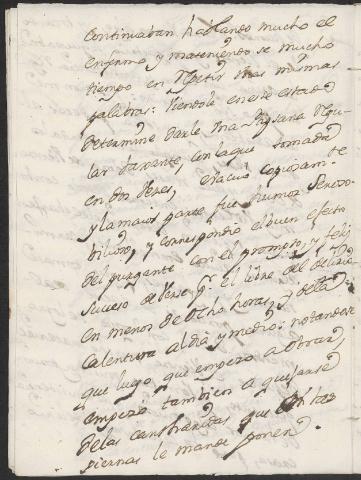 Continuaban hablando mucho el
enfermo y manteniendo se mucho
tiempo en repetir las mismas
palabras: viendole en este estado
determine darle una tysana regu-
lar laxante, con la que tomada
en dos veses, evacuó copiosam.te
y la maior parte fue humor seroso
bilioso, y correspondio el buen efecto
del purgante con el prompto, y feliz
suceso de verse q.e el libre del delirio
en menos de ocho horas, y de la
Calentura al dia y medio: notandose
que luego que empezo a obrar,
empezo tambien a quejarse
de las cantharidas que en las
piernas le mande poner.